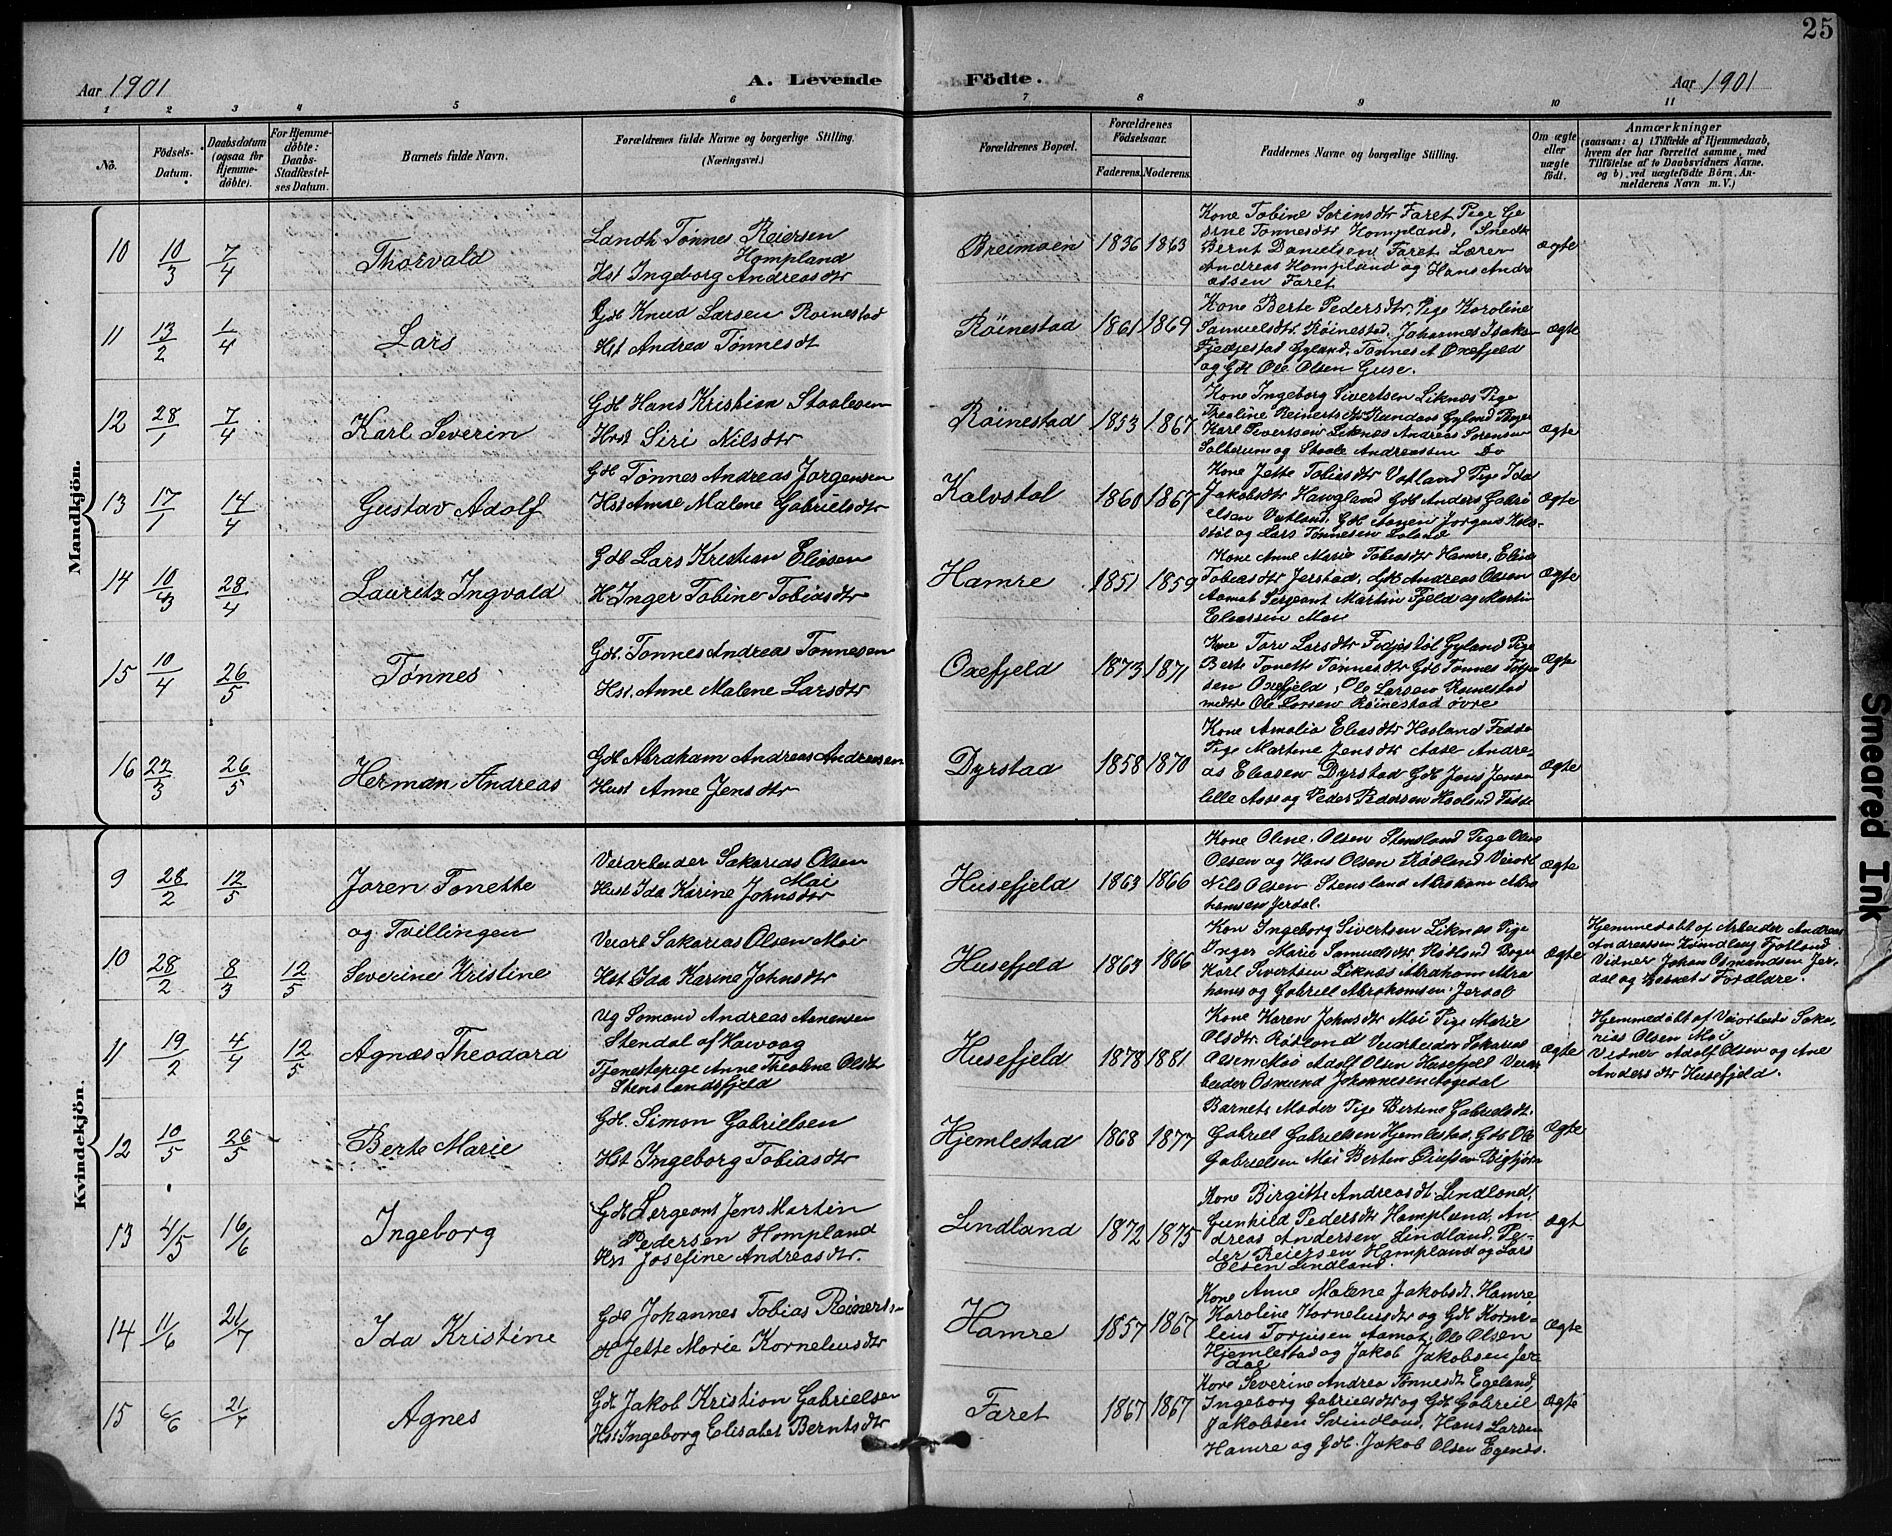 25
Aar 1901
A. Levende Födte.
Aar 1901
1 2 3 4 5 6 7 8 9 10 11
No.
Födsels-Datum.
Daabsdatum (ogsaa for Hjemme-döbte).
For Hjemme-döbte: Daabs-Stadfæstel-ses Datum.
Barnets fulde Navn.
Forældrenes fulde Navne og borgerlige Stilling. (Næringsvei.)
Forældrenes Bopæl.
Forældrenes Födselsaar.
Faderens. Moderens.
Faddernes Navne og borgerlige Stilling.
Om ægte eller uægte födt.
Anmærkninger
(saasom: a) i Tilfælde af Hjemmedaab,
hvem der har forrettet samme, med
Tilföielse af to Daabsvidners Navne.
og b), ved uægtefödte Börn, An-
melderens Navn m. V.)
Mandkjön.
10 10/3 7/4 Thorvald
Landh Tønnes Reiersen
Hompland
Hst Ingeborg Andreasdtr
Breimoen 1836 1863
Kone Tobine Sørensdtr Faret Pige Ge
sine Tonnesdtr Hompland, Snedk
Bernt Danielsen Faret Lærer
Andreas Hompland og Hans Andre
assen Faret
ægte
11 13/2 1/4 Lars
Gdb Knud Larsen Røinestad
Hst Andrea Tønnesdt
Röinestad 1861 1869
Kone Berte Pedersdtr, Pige Karoline
Samuelsdtr Røinestad, Johannes Isaks
Gyland, Tønnes A Oxefjeld
og Gdb Ole Olsen Guse.
ægte
12 28/1 7/4 Karl Severin
Gdb Hans Kristian Staalesen
Hst Siri Nilsdtr
Röinestad 1853 1867
Kone Ingeborg Sivertsen Liknes Pige
Thealine Reinertsdtr Gyland Bager
Karl Sivertsen Liknes Andreas Sørensen
og Staale Andreassen Do
ægte
13 17/1 14/4 Gustav Adolf
Gdb Tønnes Andreas Jørgensen
Hst Anne Malene Gabrielsdtr
Kalvstøl 1860 1867
Kone Jette Tobiasdtr Vatland Pige Ida
Jakobsdtr Haugland Gdb Anders Gabri
elsen Vatland, Gdb Aanen Jørgens Kalv-
støl og Lars Tønnesen Loland
ægte
14 10/3 28/4 Lauritz Ingvald
Gdb Lars Kristian Eliasen
H Inger Tobine Tobiasdtr
Hamre 1851 1859
Kone Anne Marie Tobiasdtr Hamre, Elise
Tobiasdtr Jerstad, Gdb Andreas Olsen
Aamot Sergeant Martin Fjeld og Martin
Eliassen Moi
ægte
15 10/4 26/5 Tønnes
Gdb. Tonnes Andreas Tønnesen
Hst. Anne Malene Larsdtr
Oxefjeld 1873 1871
Kone Tore Larsdtr Gyland Pige
Berte Tonette Tonnesdtr Gdb Tønnes
sen Oxefjeld, Ole Larsen Røinestad
nedre Ole Larsen Røinestad øvre
ægte
16 22/3 26/5 Herman Andreas
Gdb Abraham Andreas Andreasen
Hust Anne Jensdtr
Dyrstad 1858 1870
Kone Amalia Eliasdtr Hosland
Pige Martine Jensdtr Aase Andre-
as Eliasen Dyrstad Gdb Jens Jensen
lille Aase og Peder Pedersen
ægte
Kvindekjön.
9 28/2 12/5 Joren Tonette
Veiarbeider Sakarias Olsen
Moi
Hust Ida Karine Johnsdtr
Husefjeld 1863 1866
Kone Oline Olsen Stensland Pige Oline
Olsen og Hans Olsen Rødland Veiarb
Nils Olsen Stensland Abraham Abra
hamsen Jerdal.
ægte
og Tvillingen
10 28/2 8/3 12/5 Severine Kristine
Veiarb Sakarias Olsen Moi
Hst Ida Karine Johnsdtr
Husefjeld 1863 1866
Kon Ingeborg Sivertsen Liknes Pige
Inger Marie Samuelsdtr Rødland Bager
Karl Sivertsen Liknes Abraham Abra
hams og Gabriel Abrahamsen Jerdal
ægte
Hjemmedøbt af Arbeider Andreas
Andreassen Fjotland
Vidner Johan Osmundsen Jer-
dal og Barnets Forældre.
11 19/2 4/4 12/5 Agnæs Theodora
Ug Sømand Andreas Aanensen
Stendal af Hawaag
Tjenestepige Anne Thealine Olsdt
Stenslandsfjeld
Husefjeld 1878 1881
Kone Karen Johnsdtr Moi Pige Marie
Olsdtr Rødland Veiarbeider Sakarias
Olsen Moi Adolf Olsen Husefjeld Veiar
beider Osmund Johannesen Aagedal
ægte
Hjemmedøbt af Veiarbeide Saka-
rias Olsen Moi
Vidner Adolf Olsen og Ane
Andersdtr Husefjeld.
12 10/5 26/5 Berte Marie
Gdb. Simon Gabrielsen
Hst Ingeborg Tobiasdtr
Hjemlestad 1868 1877
Barnets Moder Pige Bertine Gabrielsdt.
Gabriel Gabrielsen Hjemlestad, Gdb Ole
Gabrielsen Moi Berten
ægte
13 4/5 16/6 Ingeborg
Gdb Sergeant Jens Martin
Pedersen Hompland
Hst Josefine Andreasdtr.
Lindland 1872 1875
Kone Birgitte Andreasdt Lindland,
Gunhild Pedersdtr Hompland, An
dreas Andersen Lindland, Pe-
der Reiersen Hompland og Lars
Olsen Lindland.
ægt
14 11/6 21/7 Ida Kristine
Gdb Johannes Tobias Reinerts-
H Jette Marie Kornelius dtr
Hamre 1857 1867
Kone Anne Malene Jakobsdt. Hamre,
Karoline Korneliusdtr og Gdb Korne-
lius Torjusen Aamot, Ole Olsen
Hjemlestad og Jakob Jakobsen Jer
dal
ægte
15 6/6 21/7 Agnes
Gdb Jakob Kristian Gabrielsen
Hst Ingeborg Elisabet Berntsdtr
Faret 1867 1867
Kone Severine Andrea Tønnesdt Egeland,
Ingeborg Gabrielsdtr og Gdb Gabriel
Jakobsen Svindland, Hans Larsen
Hamre og Gdb. Jakob Olsen
ægte
Smeared Ink